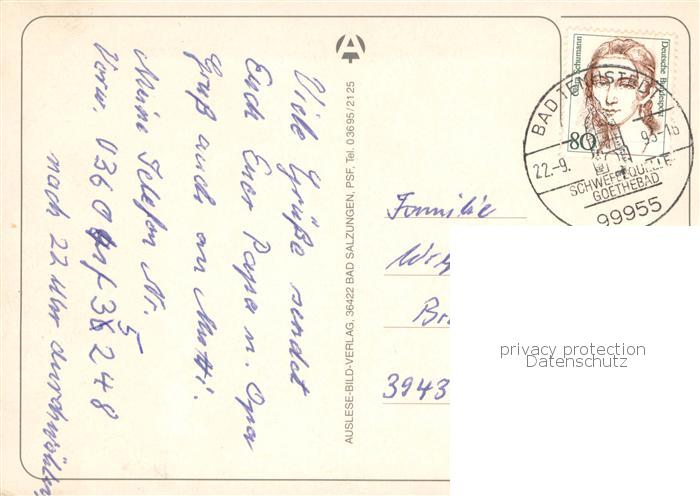 Viele Grüße sendet
Euch Euer Papa u. Opa
Gruß auch an Mutti.
Meine Telefon Nr.
Vorw. 03604
nach 22 Uhr durchwählen
AUSLESE-BILD-VERLAG, 36422 BAD SALZUNGEN, PSF, Tel. 03695/2125
Clara Schumann
Deutsche Bundespost
80
BAD TENNSTEDT
22.-9. 95-16
SCHWEFELQUELLE
GOETHEBAD
99955
Familie
3943
privacy protection
Datenschutz